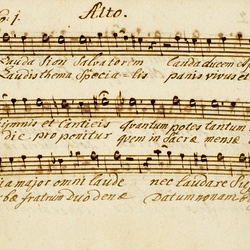 No. 1. Alto.
Lauda Sion Salvatorem Lauda ducem et
Laudis thema Specia = lis panis vivus et
himnis et canticis quantum potes tantum
die proponitur quem in Sacræ mensæ
ia major omni laude nec laudare
bæ fratrum duo denæ Datum non am